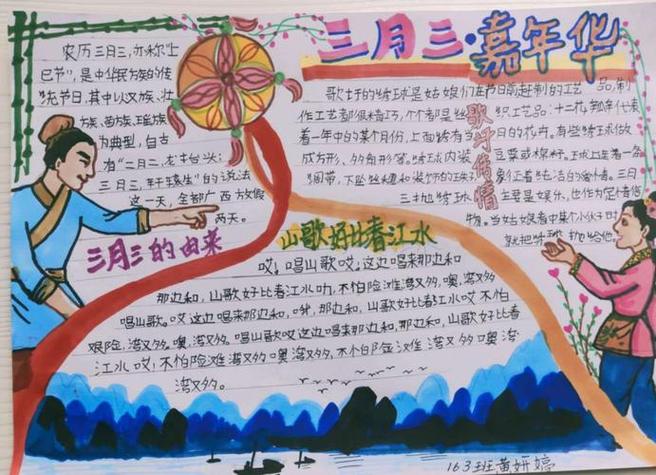 三月三·嘉年华
农历三月三,亦称“上
巳节”,是中华民族的传
统节日,其中以汉族、壮
族、苗族、瑶族
为典型,自古
有“二月二,龙抬头;
三月三,生轩辕”的说法
这一天,全部广西放假
两天。
三月三的由来
歌圩的绣球是姑娘们在节日前赶制的工艺品,制
作工艺都很精巧,个个都是丝织工艺品:十二花
着一年中的某个月份,上面绣有当日的花卉。有些绣球做
成方形、多角形等。绣球内装豆粟或棉籽。球上连着一条
绸带,下坠丝穗和装饰的珠
三抛绣球主要是娱乐,也作为定情信
物。当姑娘看中某个小伙子时
就把绣球抛给他。
歌圩传情
山歌好比春江水
哎,唱山歌哎,这边唱来那边和
那边和,山歌好比春江水,不怕险滩湾又多,噢,湾又多
唱山歌。哎这边唱来那边和,那边和,山歌好比春江水哎不怕
艰险,湾又多。噢,湾又多。唱山歌哎这边唱来那边和,那边和,山歌好比春
江水哎,不怕险滩湾又多噢湾又多,不怕险滩湾又多噢湾
湾又多。
163班黄妍婷